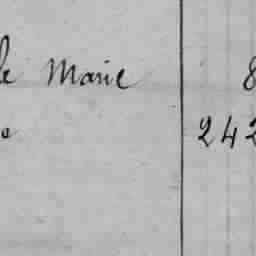 le Marie 8
242